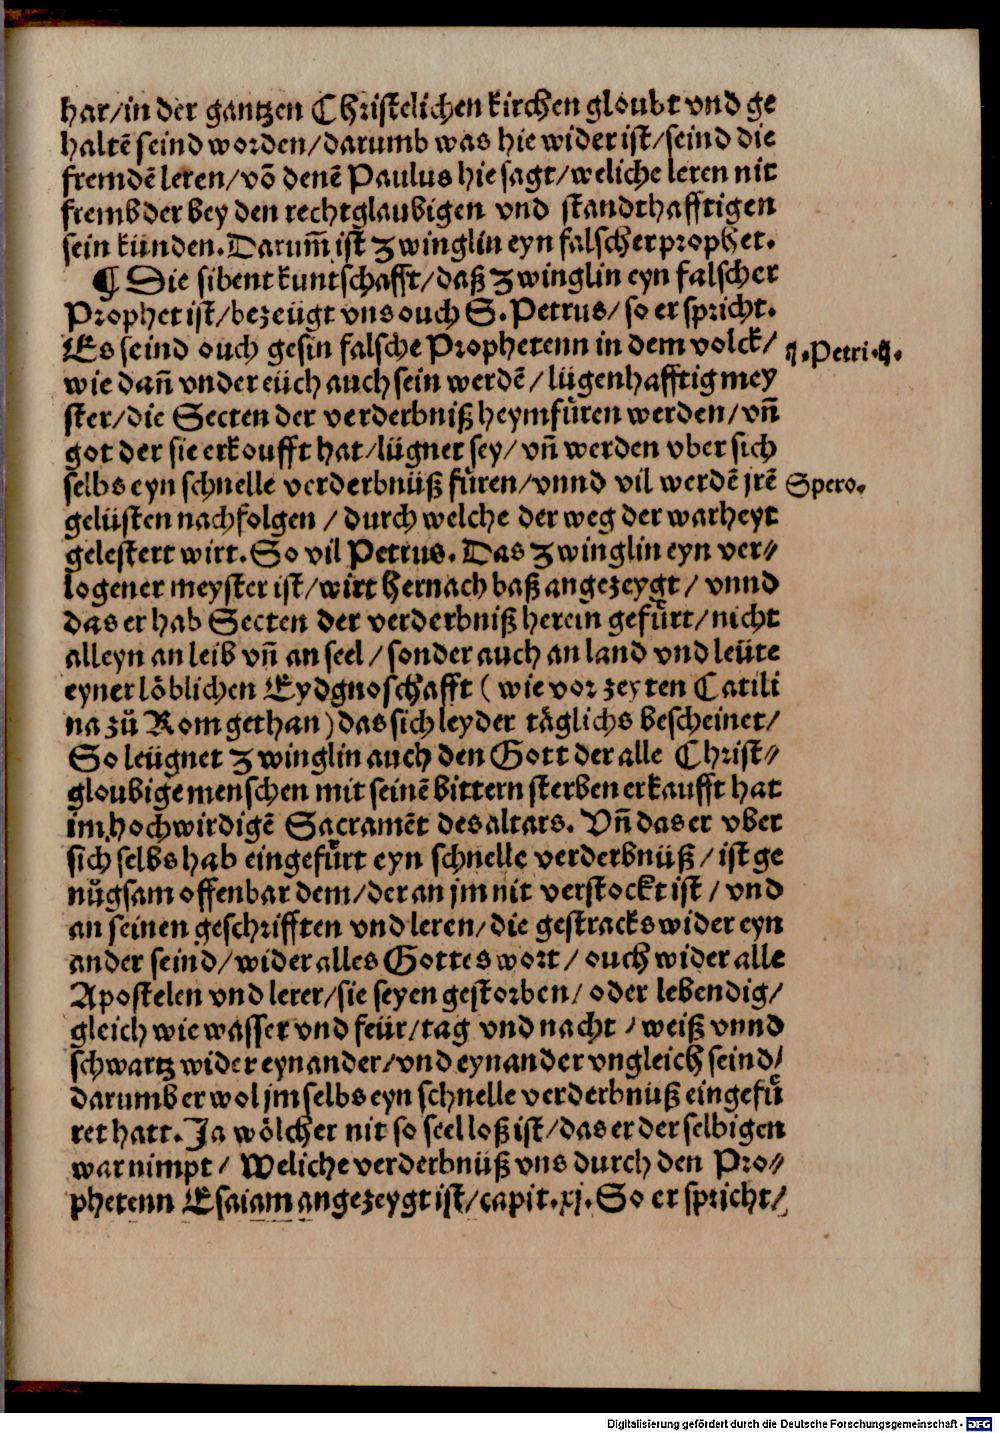 har/in der gantzen Christelichen kirchen gloubt vnd ge
haltē seind worden/darumb was hie wider ist/seind die
fremdē leren/vō denē Paulus hie sagt/weliche leren nit
frembder bey den rechtglaubigen vnd standthafftigen
sein künden. Darum̄ ist Zwinglin eyn falscher prophet.
¶ Die sibent kuntschafft/daß Zwinglin eyn falscher
Prophet ist/bezeügt vns ouch S. Petrus/ so er spricht.
Es seind ouch gesin falsche Prophetenn in dem volck/
ij. Petri. ij.
wie dañ vnder eüch auch sein werdē/ lügenhafftig mey
ster/die Secten der verderbniß heymfüren werden/vñ
got der sie erkoufft hat/lügner sey/ vñ werden vber sich
selbs eyn schnelle verderbnüß fůren/vnnd vil werdē jrē
Spero.
gelüsten nachfolgen / durch welche der weg der warheyt
gelestert wirt. So vil Petrus. Das Zwinglin eyn ver⸗
logener meyster ist/wirt hernach baß angezeygt/ vnnd
das er hab Secten der verderbniß herein gefůrt/nicht
alleyn an leib vñ an seel/sonder auch an land vnd leüte
eyner löblichen Eydgnoschafft ( wie vor zeyten Catili
na zů Rom gethan) das sich leyder täglichs bescheinet/
So leügnet Zwinglin auch den Gott der alle Christ⸗
gloubige menschen mit seinē bittern sterben erkaufft hat
im hochwirdigē Sacramēt des altars. Vñ das er vber
sich selbs hab eingefůrt eyn schnelle verderbnüß/ist ge
nůgsam offenbar dem/der an jm nit verstockt ist/ vnd
an seinen geschrifften vnd leren/die gestracks wider eyn
ander seind/wider alles Gottes wort/ ouch wider alle
Apostelen vnd lerer/sie seyen gestorben/ oder lebendig/
gleich wie wasser vnd feür/tag vnd nacht / weiß vnnd
schwartz wider eynander/vnd eynander vngleich seind/
darumb er wol jm selbs eyn schnelle verderbnüß eingefů
ret hatt. Ja wölcher nit so seelloß ist/das er der selbigen
war nimpt/ Weliche verderbnüß vns durch den Pro⸗
phetenn Esaiam angezeygt ist/capit. xj. So er spricht/
Digitalisierung gefördert durch die Deutsche Forschungsgemeinschaft - DFG